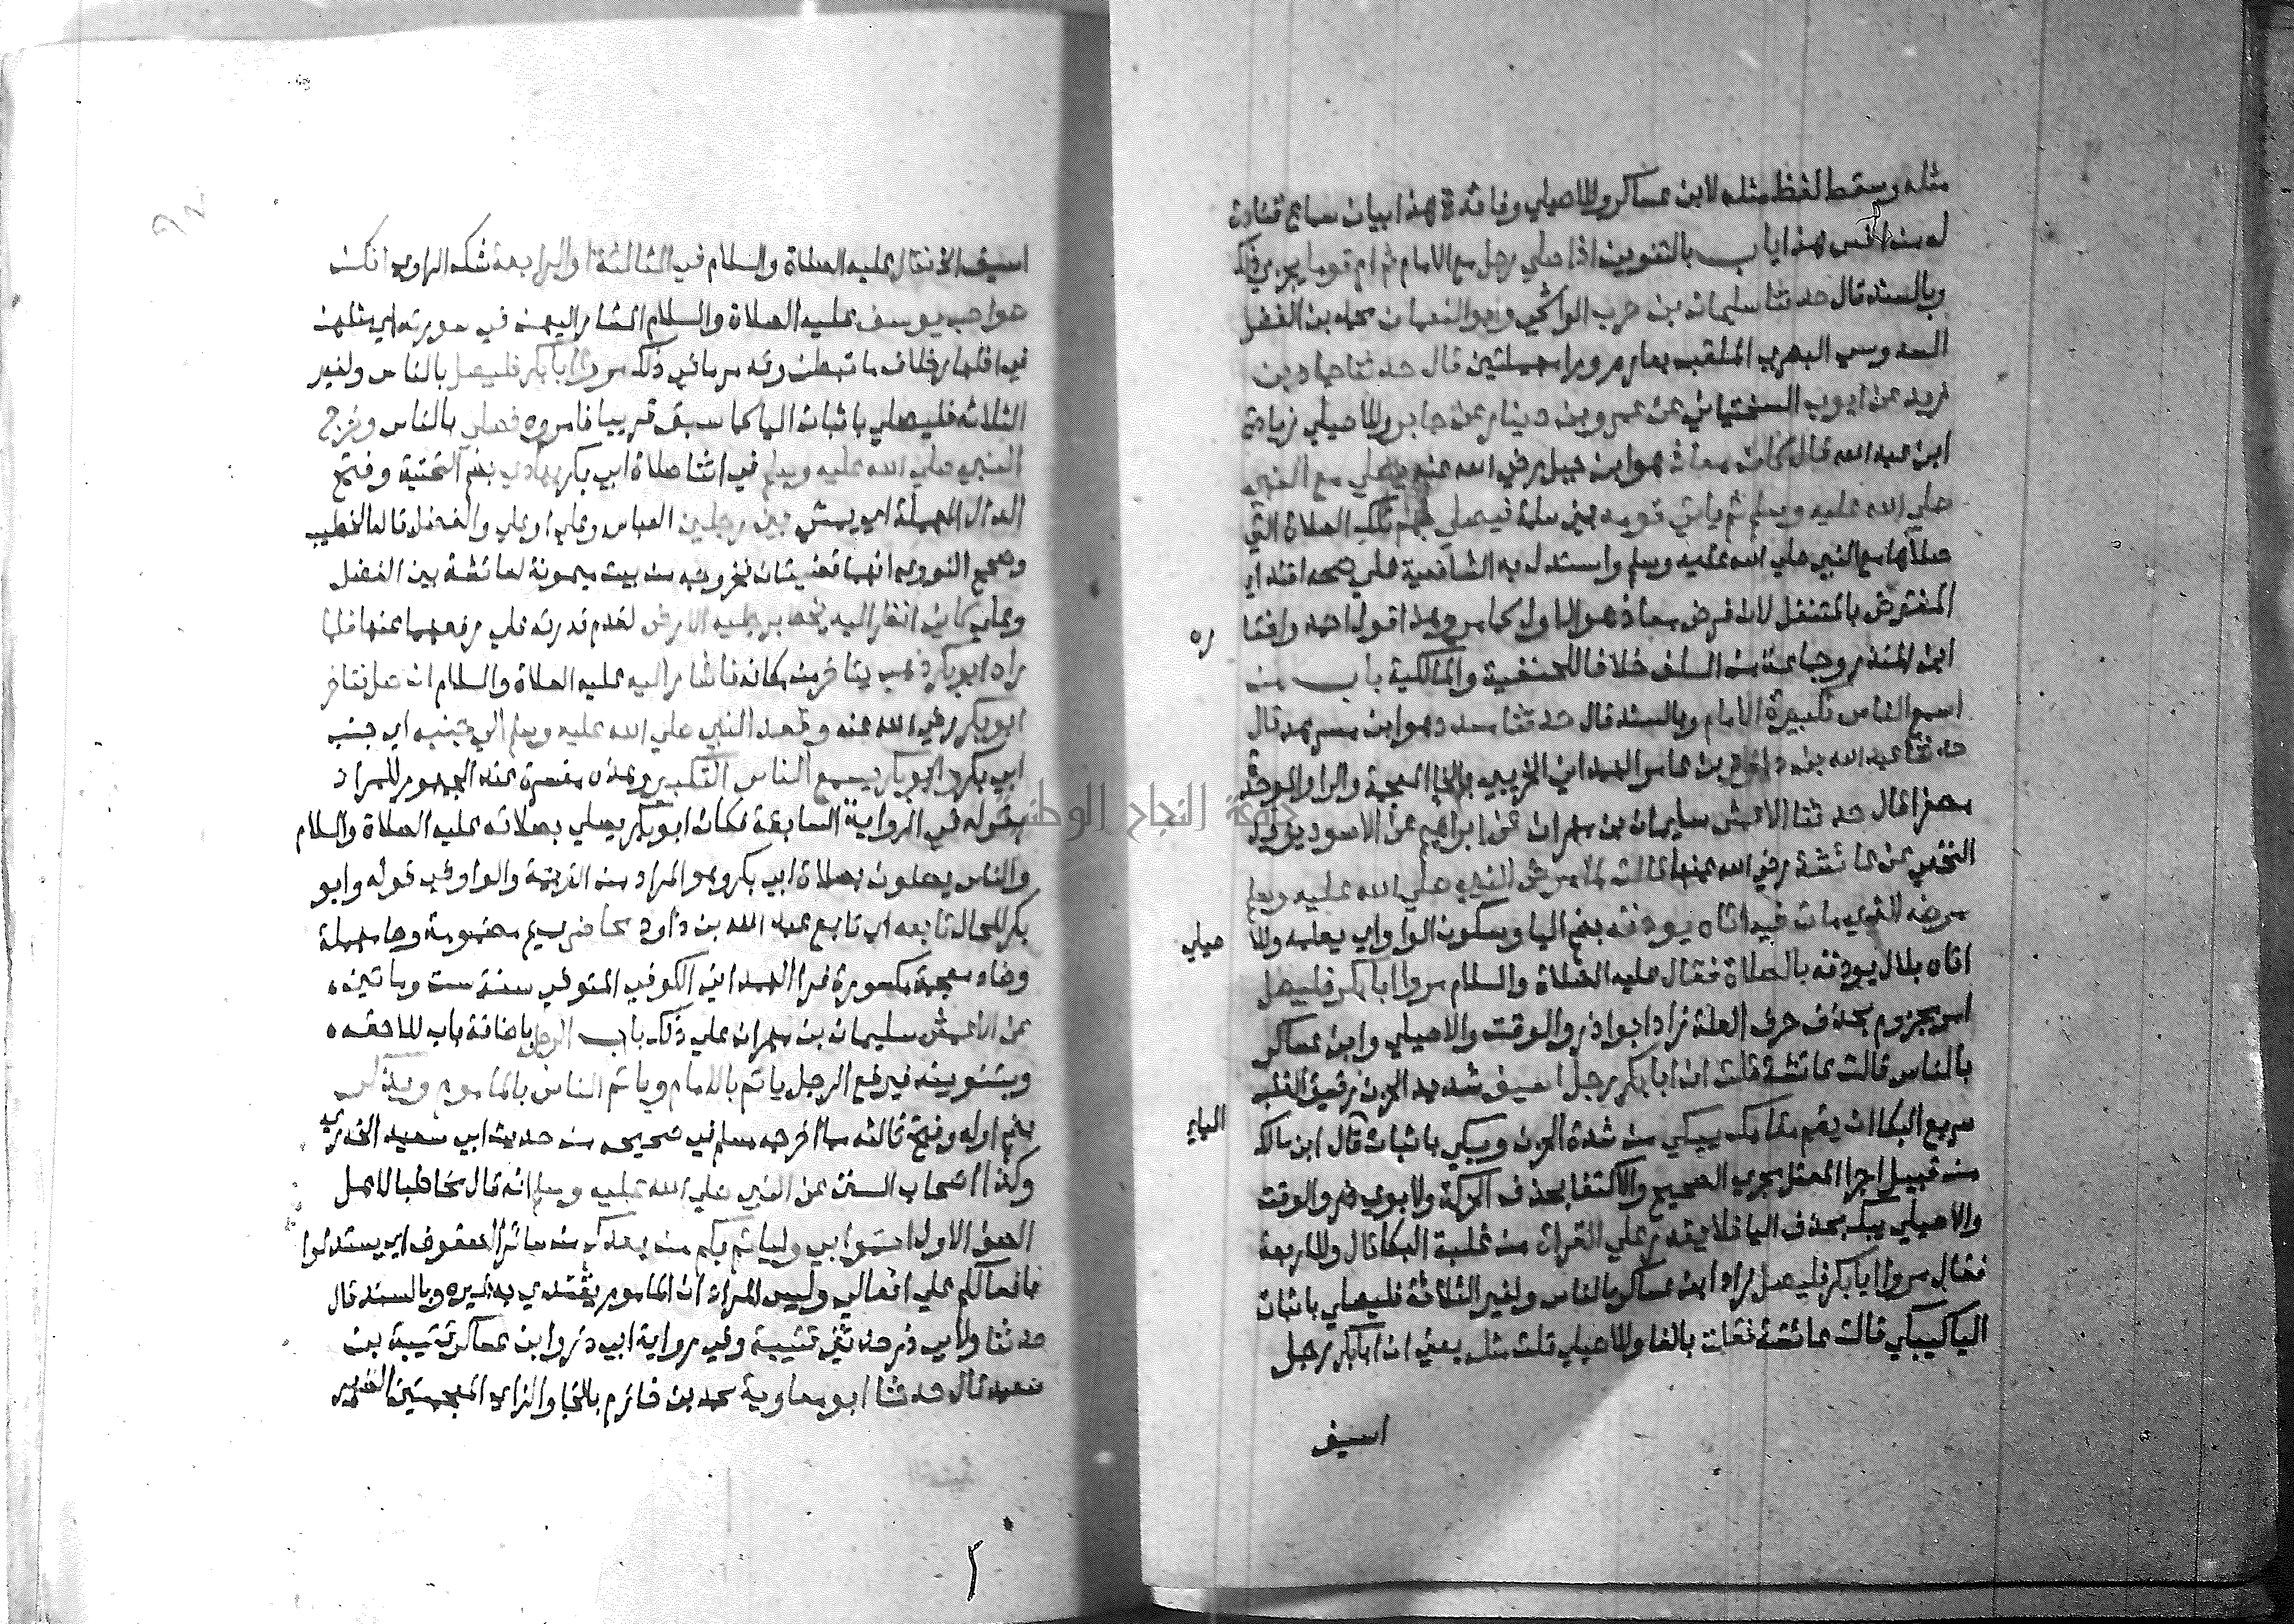 مثله وسقط لفظ مثله لابن عساكر وللاصيلي وفائدة هذا بيان سماع قتادة
له من انس هذا باب بالتنوين اذا صلي رجل مع الامام ثم ام قوما يجزي ذلك
وبالسند قال حدثنا سليمان بن حرب الواشحي وابو النعمان محمد بن الفضل
السدوسي البصري الملقب بعارم وبرا مهملتين قال حدثنا حماد بن
زيد عن ايوب السختياني عن عمرو بن دينار عن جابر وللاصيلي زيادة
ابن عبد الله قال كان معاذ هو ابن جبل رضي الله عنه يصلي مع النبي
صلي الله عليه وسلم ثم ياتي قومه بني سلمة فيصلي بهم تلك الصلاة التي
صلاها مع النبي صلي الله عليه وسلم واستدل به الشافعية علي صحة اقتداي
المفترض بالمتنفل لان فرض معاذ هو الاول كما مر وبهذا قول احمد واختا
ره
ابن المنذر وجماعة من السلف خلافا للحنفية والمالكية باب من
اسمع الناس تكبيرة الامام وبالسند قال حدثنا مسدد هو ابن مسرهد قال
حدثنا عبد الله بن داود بن عامر الهمداني الخريبي بالخا المعجمة والرا والموحدة
مصغرا قال حدثنا الاعمش سليمان بن مهران عن ابراهيم عن الاسود يزيد
النخعي عن عائشة رضي الله عنها قالت لما مرض النبي صلي الله عليه وسلم
مرضه الذي مات فيه اتاه يوذنه بضم اليا وسكون الواو اي يعلمه وللا
صيلي
اتاه بلال يوذنه بالصلاة فقال عليه الصلاة والسلام مروا ابا بكر فليصل
امر مجزوم بحذف حرف العلة زاد ابوا ذر والوقت والاصيلي وابن عساكر
بالناس قالت عائشة قلت ان ابا بكر رجل اسيف شديد الحزن رقيق القلب
سريع البكا ان يقم مقامك يبكي من شدة الحزن ويبكي باثبات قال ابن مالك
الياي
من قبيل اجرا المعتل مجري الصحيح والاكتفا بحذف الحركة ولابوي ذر والوقت
والاصيلي يبك بحذف اليا فلا يقدر علي القراة من غلبة البكا قال وللاربعة
فقال مروا ابا بكر فليصل زاد ابن عساكر بالناس ولغير الثلاثة فليصلي باثبات
اليا كيبكي قالت عائشة فقلت بالفا وللاصيلي قلت مثله يعني ان ابا بكر رجل
اسيف
اسيف الخ فقال عليه الصلاة والسلام في الثالثة او الرابعة شك الراوي انكن
صواحب يوسف عليه الصلاة والسلام المشار اليهن في سورته اي مثلهن
في اظهار خلاف ما تبطن وقد مر ما في ذلك مروا ابا بكر فليصل بالناس ولغير
الثلاثة فليصلي باثبات اليا كما سبق قريبا فامروه فصلي بالناس وخرج
النبي صلي الله عليه وسلم في اثنا صلاة ابي بكر يهادي بضم التحتية وفتح
الدال المهملة اي يمشي بين رجلين العباس وعلي او علي والفضل قاله الخطيب
وصحح النووي انهما قضيتان فخروجه من بيت ميمونة لعائشة بين الفضل
وعلي كاني انظر اليه يخط برجليه الارض لعدم قدرته علي رفعهما عنها فلما
راه ابو بكر ذهب يتاخر من مكانه فاشار اليه عليه الصلاة والسلام ان صل فتاخر
ابو بكر رضي الله عنه وقعد النبي صلي الله عليه وسلم الي جنبه اي جنب
ابي بكر وابو بكر يسمع الناس التكبير وهذه مفسرة عند الجمهور للمراد
بقوله في الرواية السابقة فكان ابو بكر يصلي بصلاته عليه الصلاة والسلام
والناس يصلون بصلاة ابي بكر وهو المراد من الترجمة والواو في قوله وابو
بكر للحال تابعه اي تابع عبد الله بن داود محاضر بميم مضمومة وحا مهملة
وضاد معجمة مكسورة فرا الهمداني الكوفي المتوفي سنة ست وماتين
عن الاعمش سليمان بن مهران علي ذلك باب الرجل باضافة باب للاحقه
وبتنوينه فيرفع الرجل ياتم بالامام وياتم الناس بالماموم ويذكر
بضم اوله وفتح ثالثه مما اخرجه مسلم في صحيحه من حديث ابي سعيد الخدري
وكذا اصحاب السنن عن النبي صلي الله عليه وسلم انه قال مخاطبا لاهل
الصف الاول ايتموا بي ولياتم بكم من بعدكم من سائر الصفوف اي يستدلوا
بافعالكم علي افعالي وليس المراد ان الماموم يقتدي به غيره وبالسند قال
حدثنا ولابي ذر حدثني قتيبة وفي رواية ابي ذر وابن عساكر قتيبة بن
سعيد قال حدثنا ابو معاوية محمد بن خازم بالخا والزاي المعجمتين الضرير
جامعة النجاح الوطنية